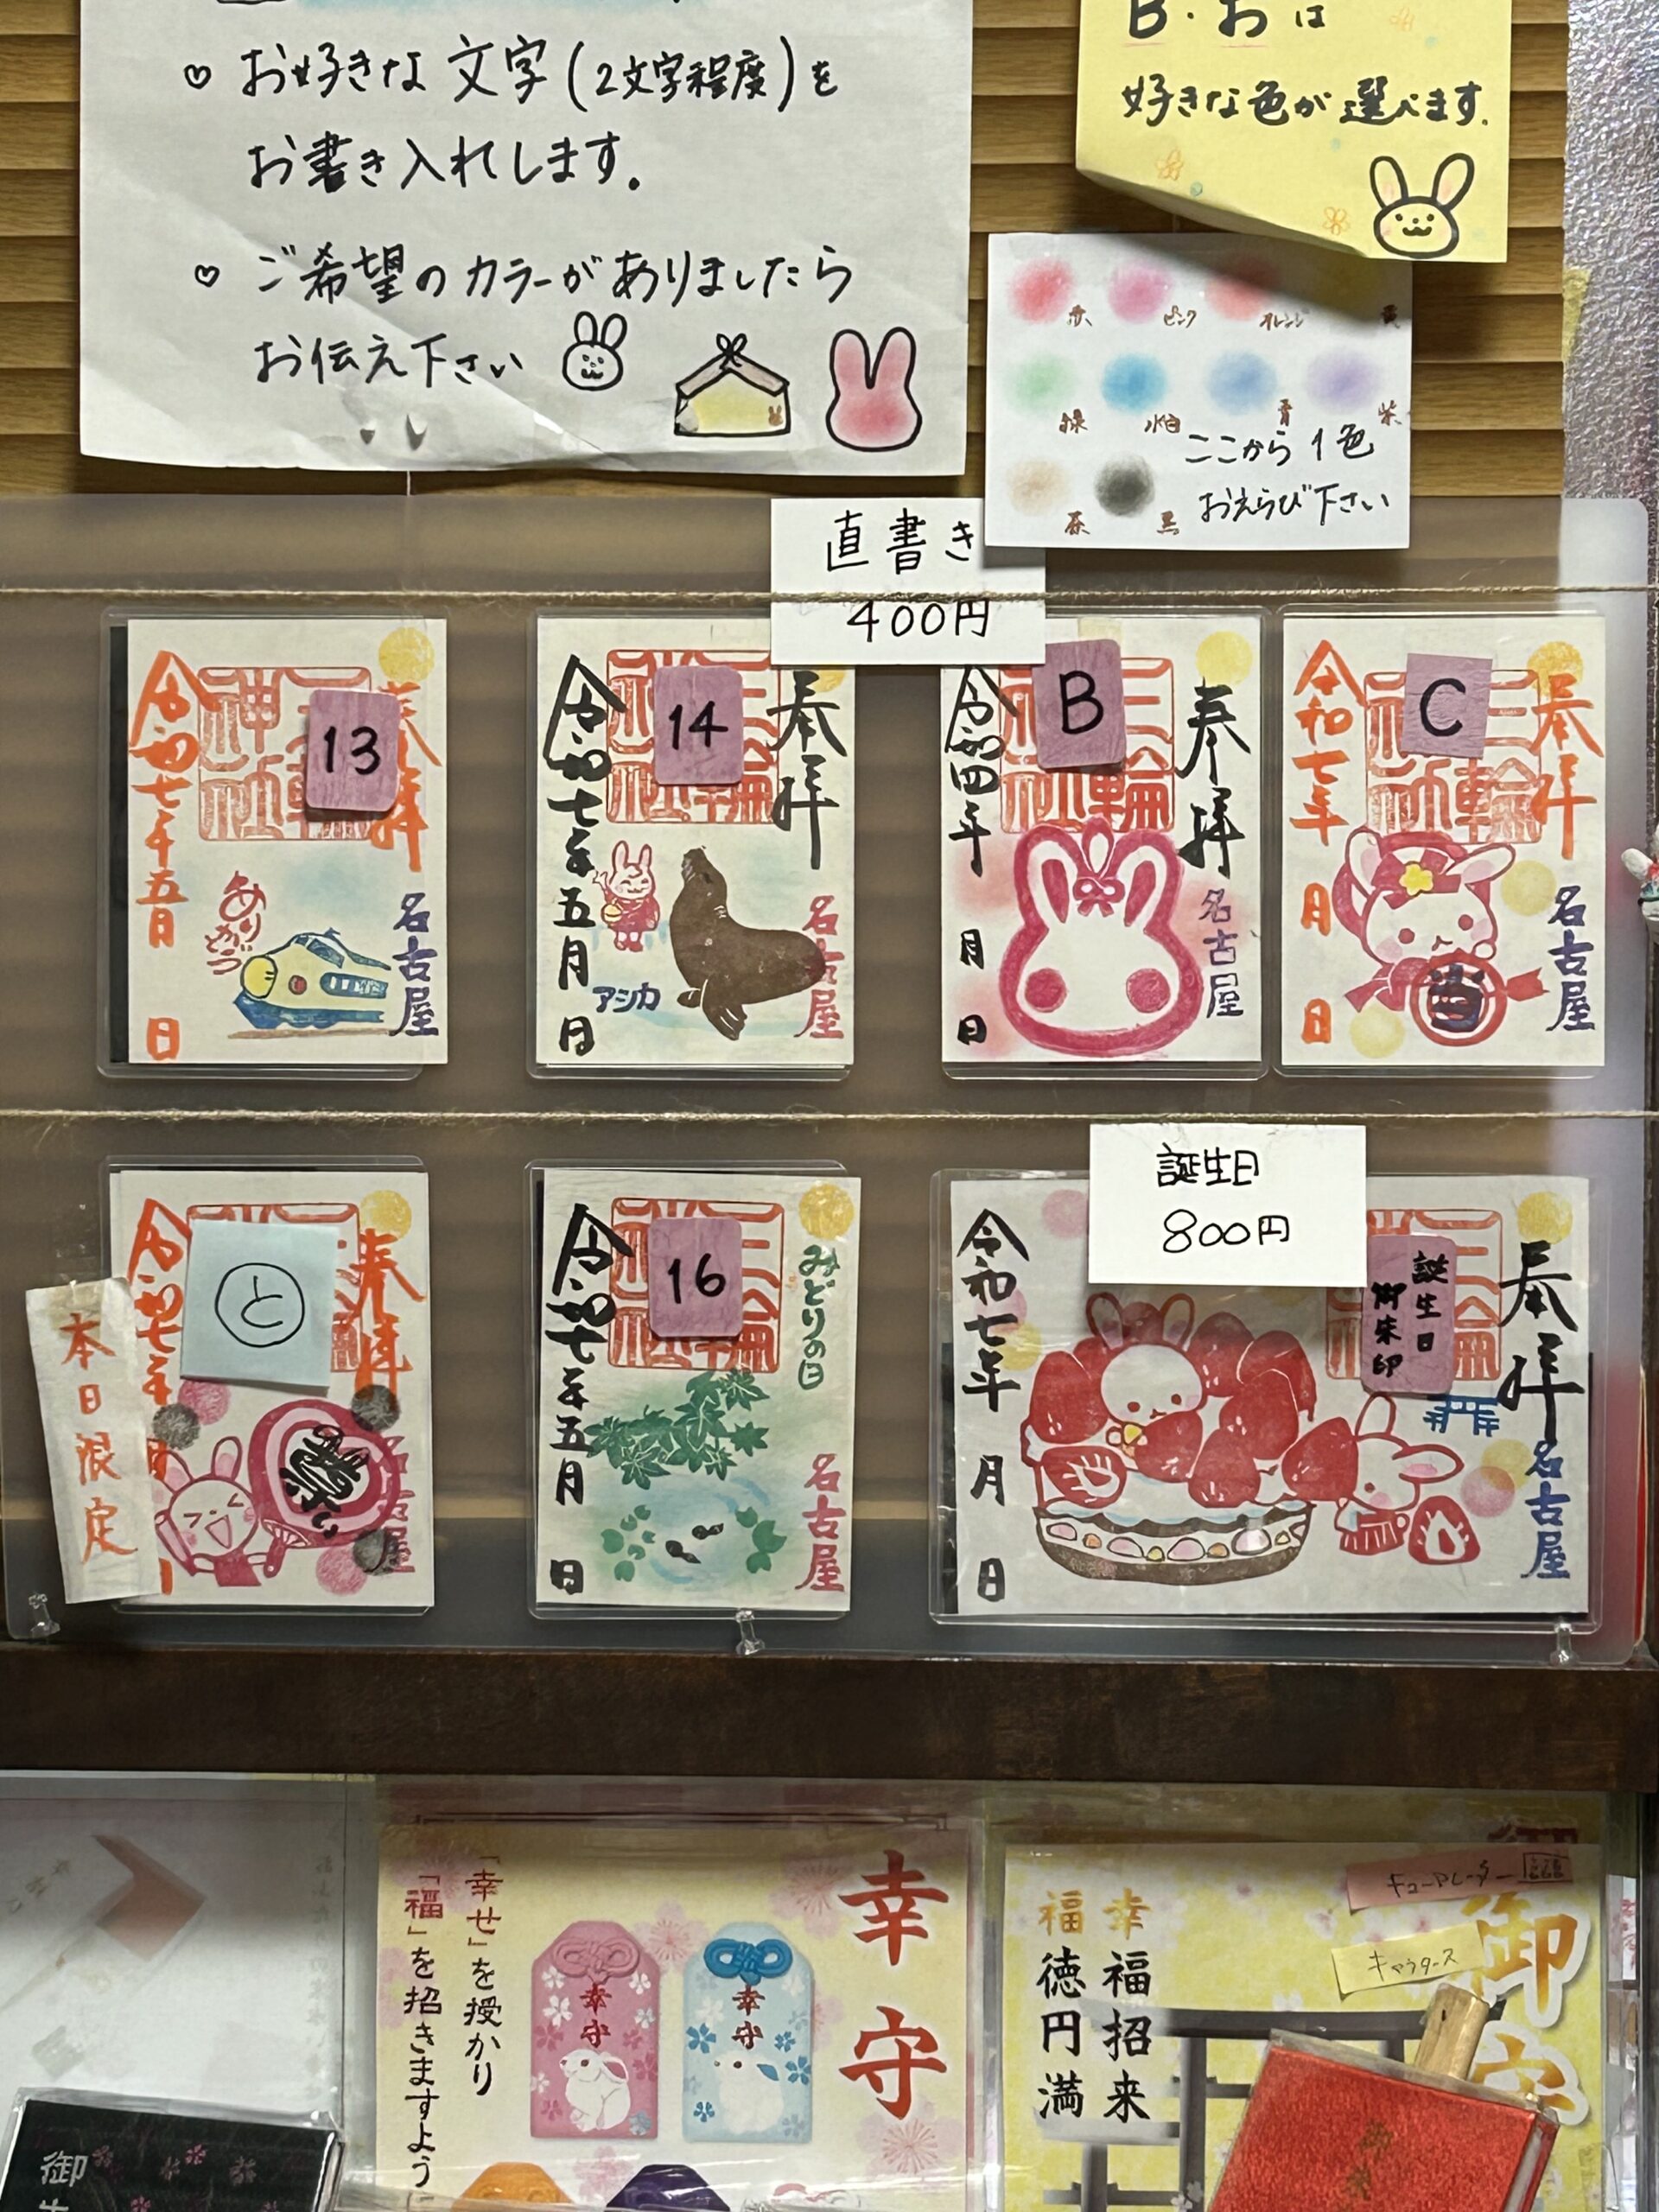 ♡ お好きな文字(2文字程度)を
お書き入れします。
♡ ご希望のカラーがありましたら
お伝え下さい
B・おは
好きな色が選べます。
赤 ピンク オレンジ 黄
緑 水色 青 紫
茶 黒
ここから1色
おえらび下さい
直書き
400円
13
奉拝
令和七年五月
日
ありがとう
名古屋
14
奉拝
三輪神社
令和七年五月
日
アシカ
名古屋
B
奉拝
三輪神社
令和四年
月
日
名古屋
C
奉拝
三輪神社
令和七年
月
日
当
名古屋
本日限定
と
奉拝
令和七年
名古屋
16
みどりの日
令和七年五月
日
名古屋
誕生日
800円
誕生日
御朱印
奉拝
令和七年
月
日
名古屋
幸守
「幸せ」を授かり
「福」を招きますよう
幸守
幸守
御守
幸福招来
福徳円満
キャラクターズ
御